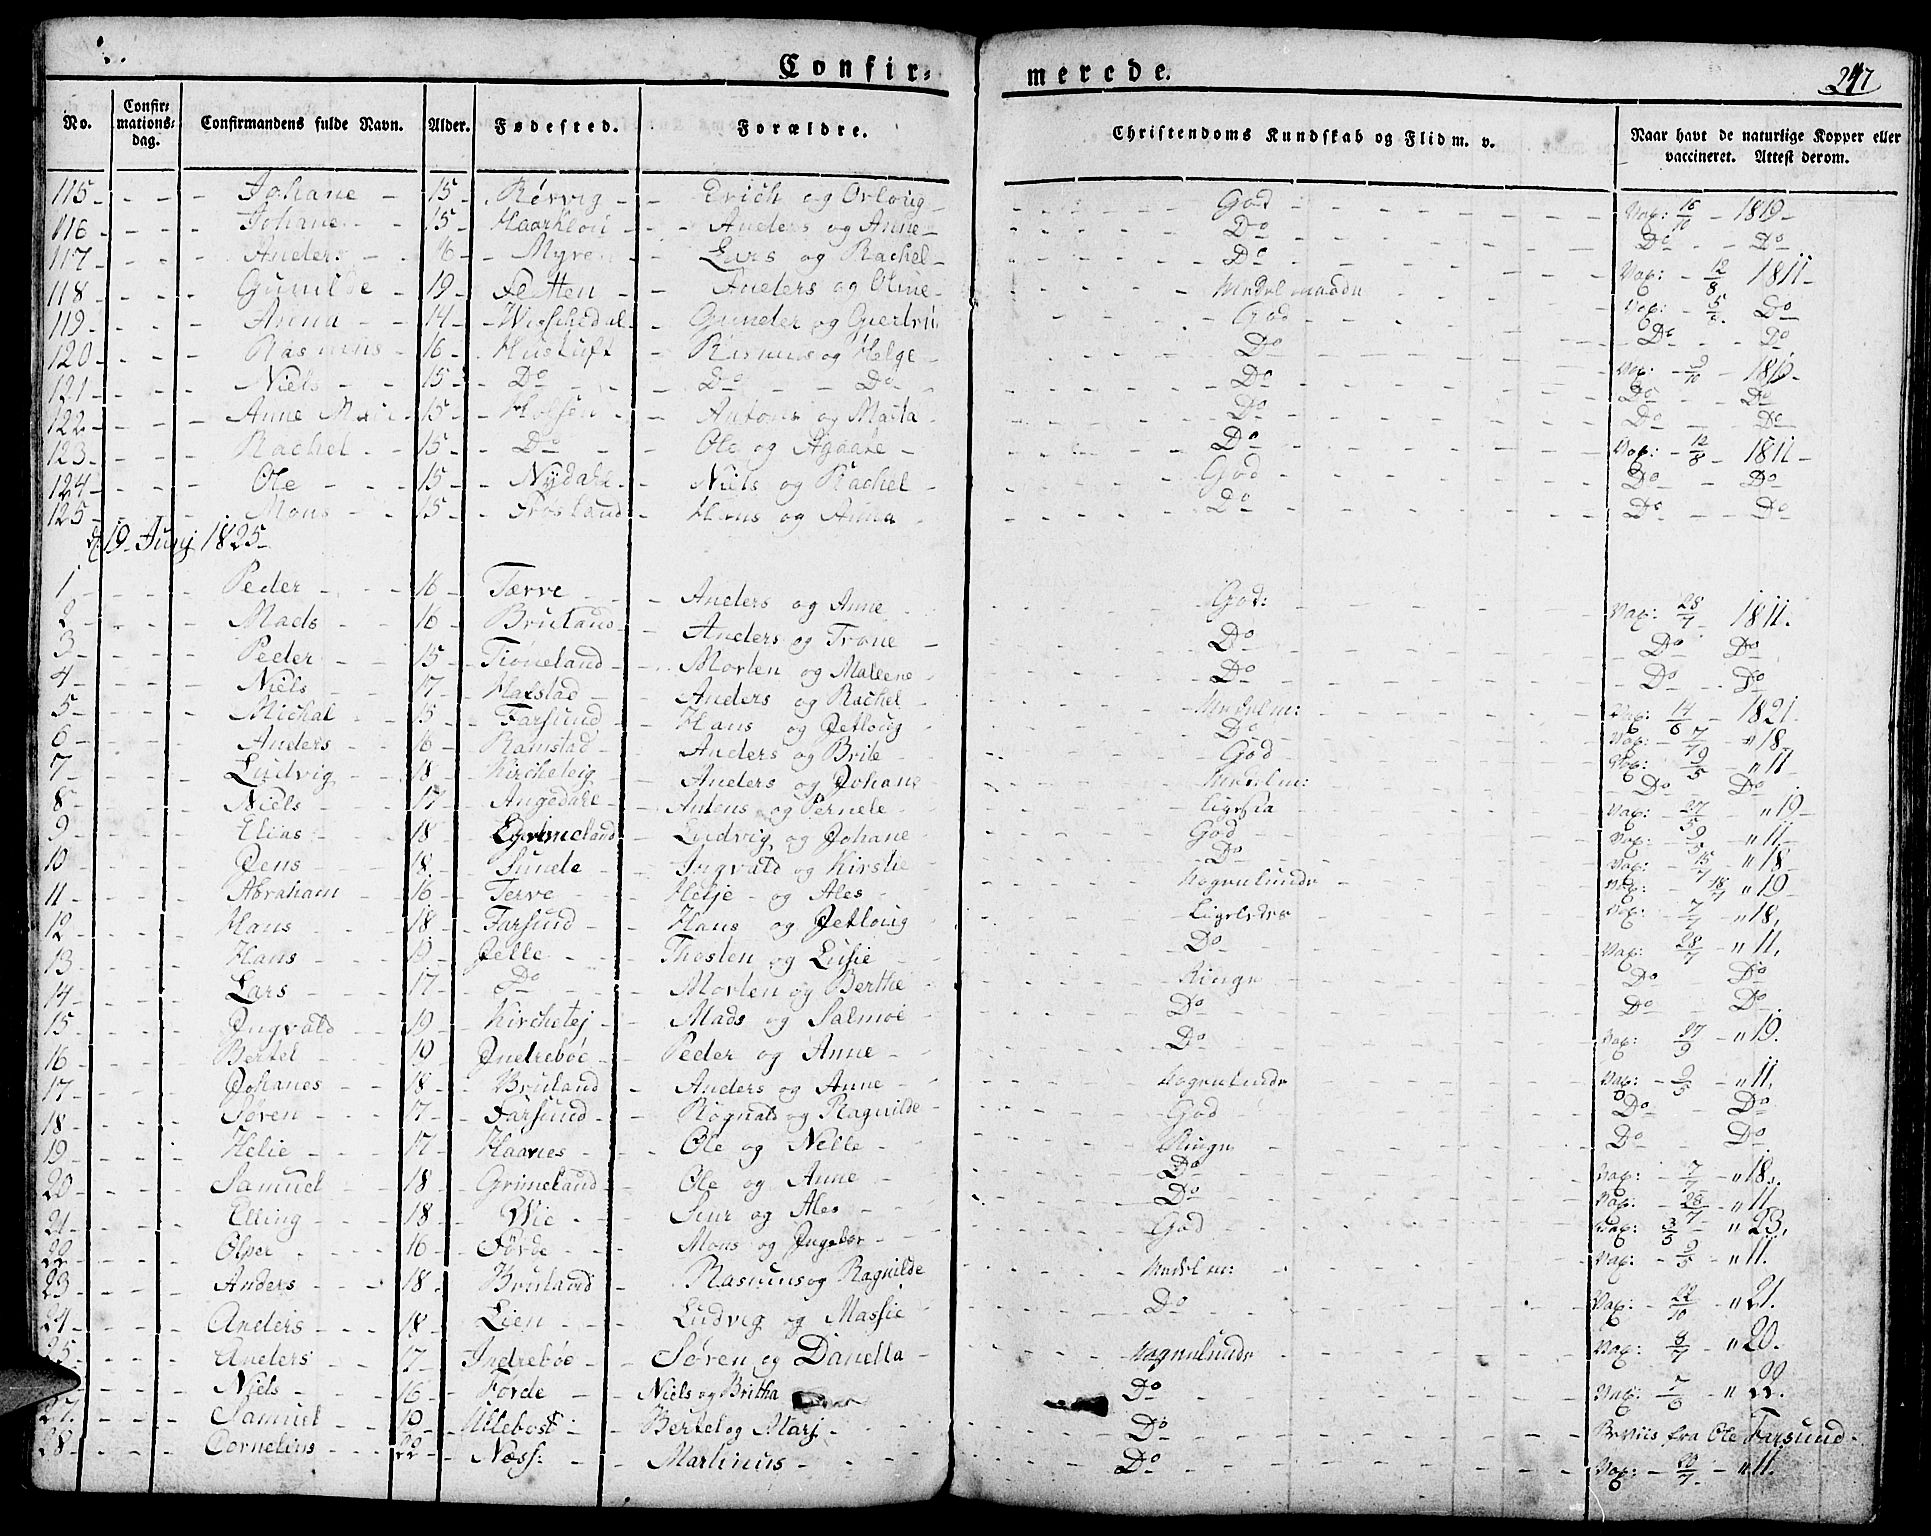 Confir-merede. 247
No. Confirmations-dag. Confirmandens fulde Navn. Alder. Fødested. Forældre. Christendoms Kundskab og Flid m. v. Naar havt de naturlige Kopper eller vaccineret. Attest derom.
115 Johane 15 Rørvig Erich og Orloug God Vax: 16/10 1819
116 Johane 15 Haarklou Anders og Anne Do Do Do
117 Anders 16 Myren Lars og Rachel Do Vax: 12/8 1811
118 Gunilde 19 Fetten Anders og Oline Medelmaade Vax: Do
119 Anna 14 Gunder og God Do Do
120 Rasmus 16 Hustuft Rasmus og Helge Do Vax: 9/10 1819
121 Niels 15 Do Do Do Do Do Do
122 Anne 15 Holsen Antons og Marta Do Do Do
123 Rachel 15 Do Ole og Agaate Do Vax: 12/8 1811
124 Ole 15 Nydahl Niels og Rachel God Do Do
125 Mons 15 Frosland Hans og Anna Do Do Do
d. 19 Junj 1825
1 Peder 16 Tærve Anders og Anne God: Vax: 28/7 1811.
2 Mads 16 Bruland Anders og Trone Do Do Do
3 Peder 15 Tioneland Morten og Mallene Do Do Do
4 Niels 17 Halstad Anders og Rachel Medelm: Vax: 14/6 1821.
5 Michal 15 Farsund Hans og Jetloug Do Vax: 7/7 18
6 Anders 16 Ramstad Anders og Brite God Vax: 9/5 " 11
7 Ludvig 18 Kircheteig Anders og Johane Medelm: Do Do
8 Niels 17 Angedahl Antons og Pernele Ligesaa Vax: 27/5 " 19
9 Elias 18 Grimeland Ludvig og Johane God Vax: 9/5 " 11
10 Jens 18 Sunde Ingvald og Kirstie Do Vax: 15/7 " 18
11 Abraham 16 Terve Helje og Ales Nogenlunde Vax: 18/7 " 19
12 Hans 18 Farsund Hans og Jetloug Ligeledes Vax: 7/7 " 18,
13 Hans 19 Jelle Thosten og Lusie Do Vax: 28/7 " 11,
14 Lars 17 Do Morten og Berthe Ringe Do Do
15 Ingvald 19 Kirchetej Mads og Salmoe Do Do Do
16 Bertel 19 Indrebøe Peder og Anne Do Vax: 27/9 " 19.
17 Johanes 18 Bruland Anders og Anne Nogenlunde Vax: 9/5 " 11,
18 Søren 17 Farsund Rognald og Ragnilde God Do Do
19 Helie 17 Haavnes Ole og Nelle Ringe Do Do
20 Samuel 18 Grimeland Ole og Anne Do Vax: 7/7 " 18.
21 Elling 18 Wie Siur og Ales Do Vax: 28/7 " 11.
22 Olper 16 Førde Mons og Ingebor God Vax: 3/6 " 23,
23 Anders 18 Bruland Rasmus og Ragnilde Medelm: Vax: 9/5 " 11.
24 Anders 18 Lien Ludvig og Massie Do Vax: 22/10 " 21.
25 Anders 17 Indrebøe Søren og Danella Nogenlunde Vax: " 20.
Niels 16 Førde Niels og Britha Do Vax: 7/6 " 22.
27. Samuel 19 Ullebost Bertel og Marj Do Beviis fra Ole Farsund
28 Cornelius 22 Næss: Martinus Do Vax: 20/7 " 11.